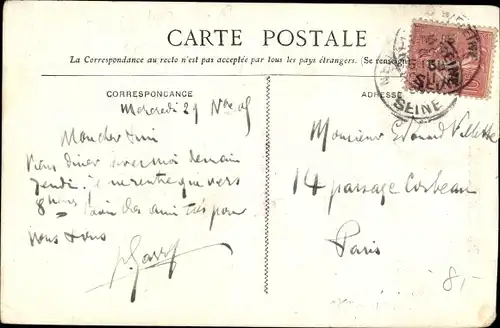 CARTE POSTALE
La Correspondance au recto n'est pas acceptée par tous les pays étrangers. (Se renseigner
CORRESPONDANCE
ADRESSE
Mercredi 29 Nbre 05
Mon cher Ami
Viens diner avec moi demain
Jeudi. je ne rentre que vers
8 heures. des amitiés pour
vous tous
Monsieur Edouard Villette
14 passage Corbeau
Paris
SEINE
8,-